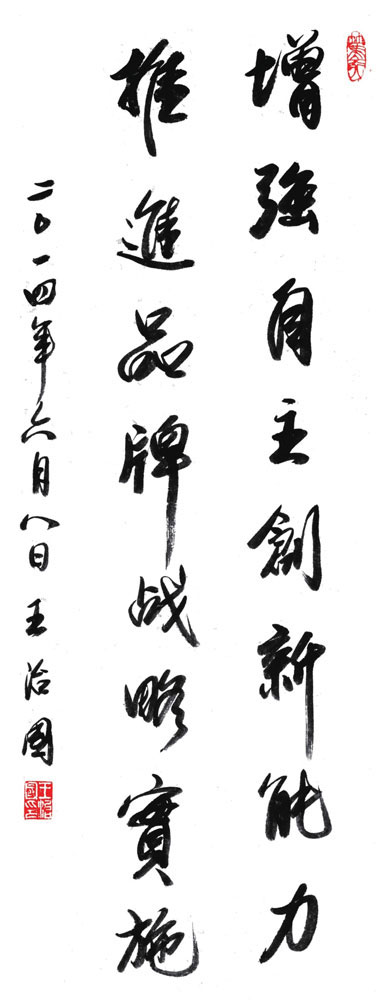 增強自主創新能力
推進品牌战略實施
二〇一四年六月八日王治國